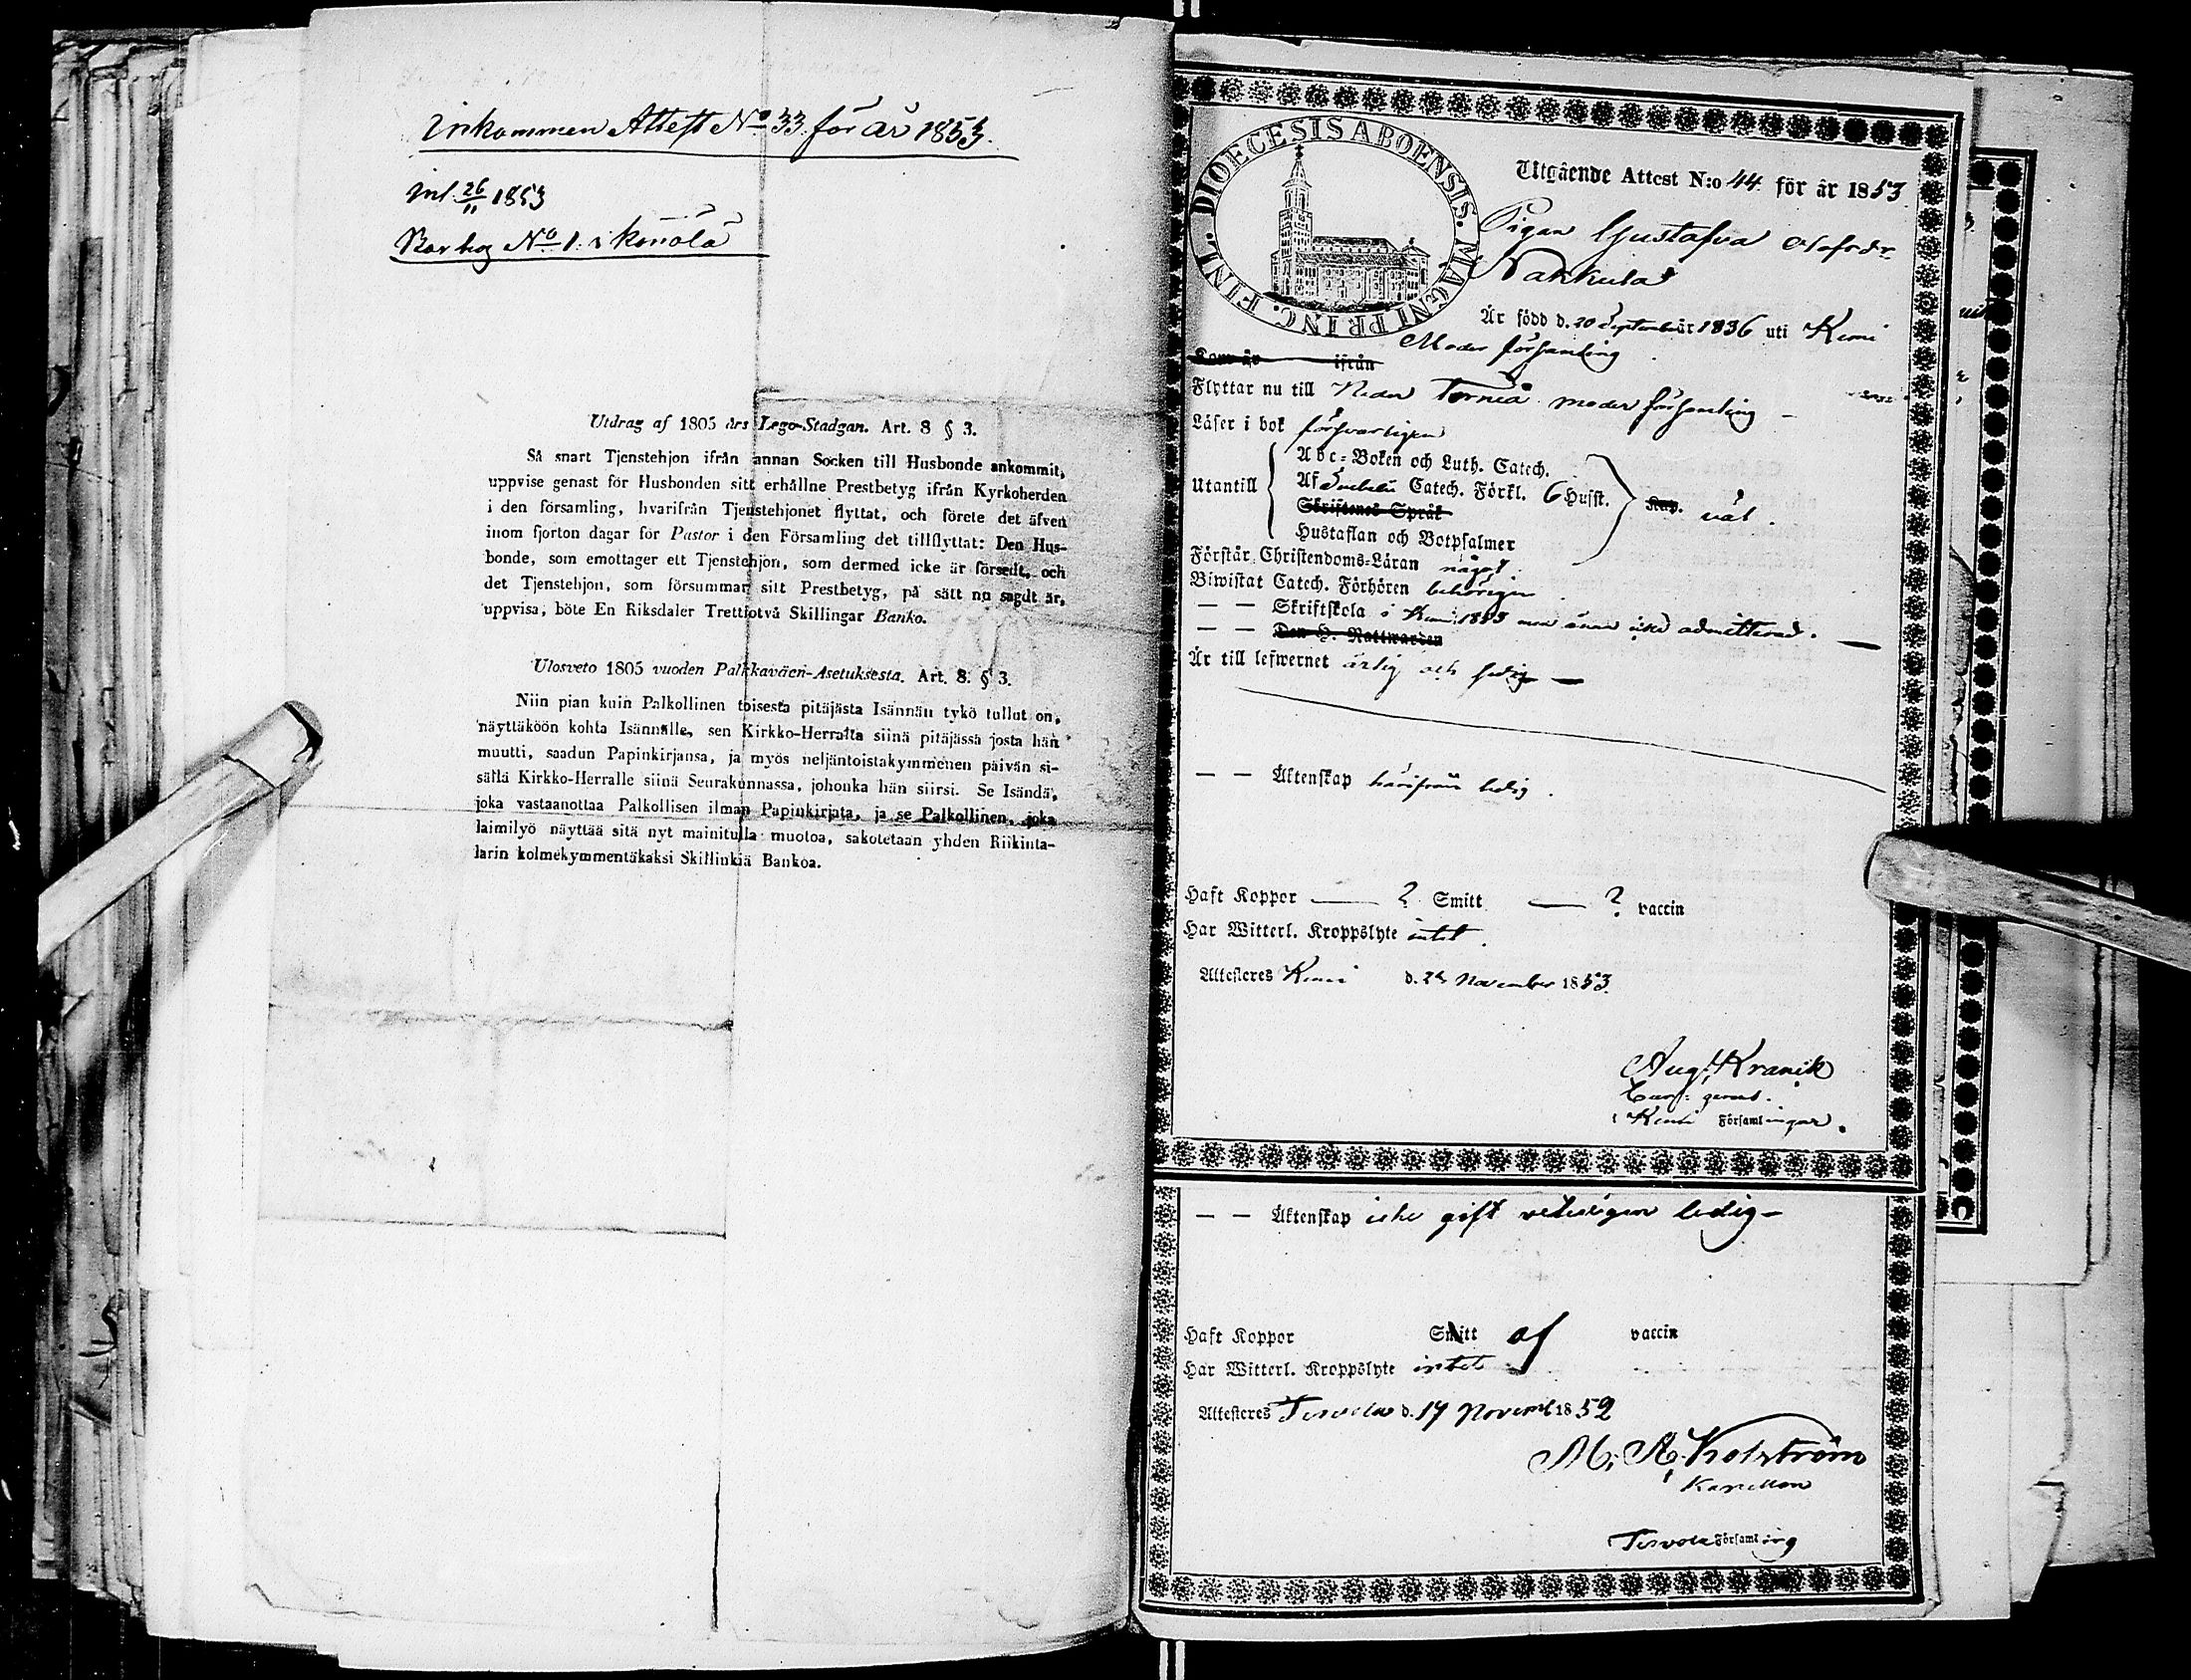 Inkommen Attest No 33 för år 1853.
Inl. 26/11 1853
No 1. i Kenölä
Utdrag af 1805 års Lego-Stadgan. Art. 8 § 3.
Så snart Tjenstehjon ifrån annan Socken till Husbonde ankommit,
uppvise genast för Husbonden sitt erhållne Prestbetyg ifrån Kyrkoherden
i den församling, hvarifrån Tjenstehjonet flyttat, och förete det äfven
inom fjorton dagar för Pastor i den Församling det tillflyttat: Den Hus-
bonde, som emottager ett Tjenstehjon, som dermed icke är försedt, och
det Tjenstehjon, som försummar sitt Prestbetyg, på sätt nu sagdt är,
uppvisa, böte En Riksdaler Trettiotvå Skillingar Banko.
Ulosveto 1805 vuoden Palkkaväen-Asetuksesta. Art. 8. § 3.
Niin pian kuin Palkollinen toisesta pitäjästä Isännän tykö tullut on,
näyttäköön kohta Isännälle, sen Kirkko-Herralta siinä pitäjässä josta hän
muutti, saadun Papinkirjansa, ja myös neljäntoistakymmenen päivän si-
sällä Kirkko-Herralle siinä Seurakunnassa, johonka hän siirsi. Se Isändä,
joka vastaanottaa Palkollisen ilman Papinkirjata, ja se Palkollinen, joka
laimilyö näyttää sitä nyt mainitulla muotoa, sakotetaan yhden Riikinta-
larin kolmekymmentäkaksi Skillinkiä Bankoa.
DIOECESIS ABOENSIS. MAGNI PRINC. FINL.
Utgående Attest N:o 44 för år 1853.
Pigan Gustafva Olofsdr
Nakkula
Är född d. 20 September år 1836 uti Kemi
Moder församling
Kom år ifrån
Flyttar nu till Neder Torneå moder församling
Läser i bok försvarligen
Utantill
Abc-Boken och Luth. Catech.
Af Svebelii Catech. Förkl. 6 Hufst.
Skriftenes Språk
Hustaflan och Botpsalmer
Kap. väl.
Förstår Christendoms-Läran något.
Biwistat Catech. Förhören behörigen.
— — Skriftskola i Kemi 1853 men ännu icke admitterad.
— — Den H. Nattwarden
Är till lefwernet ärlig och sedig
— — Äktenskap härifrån ledig.
Haft Koppor — ? Smitt — ? vaccin
Har Witterl. Kroppslyte intet.
Attesteres Kemi d. 24 November 1853.
Aug. Kranck
i Kemi Församlingar.
— — Äktenskap icke gift veterligen ledig—
Haft Koppor Smitt af vaccin
Har Witterl. Kroppslyte intet
Attesteres Tervola d. 17 Novemb 1852
M. A. Holström
Kapellan
Tervola Församling